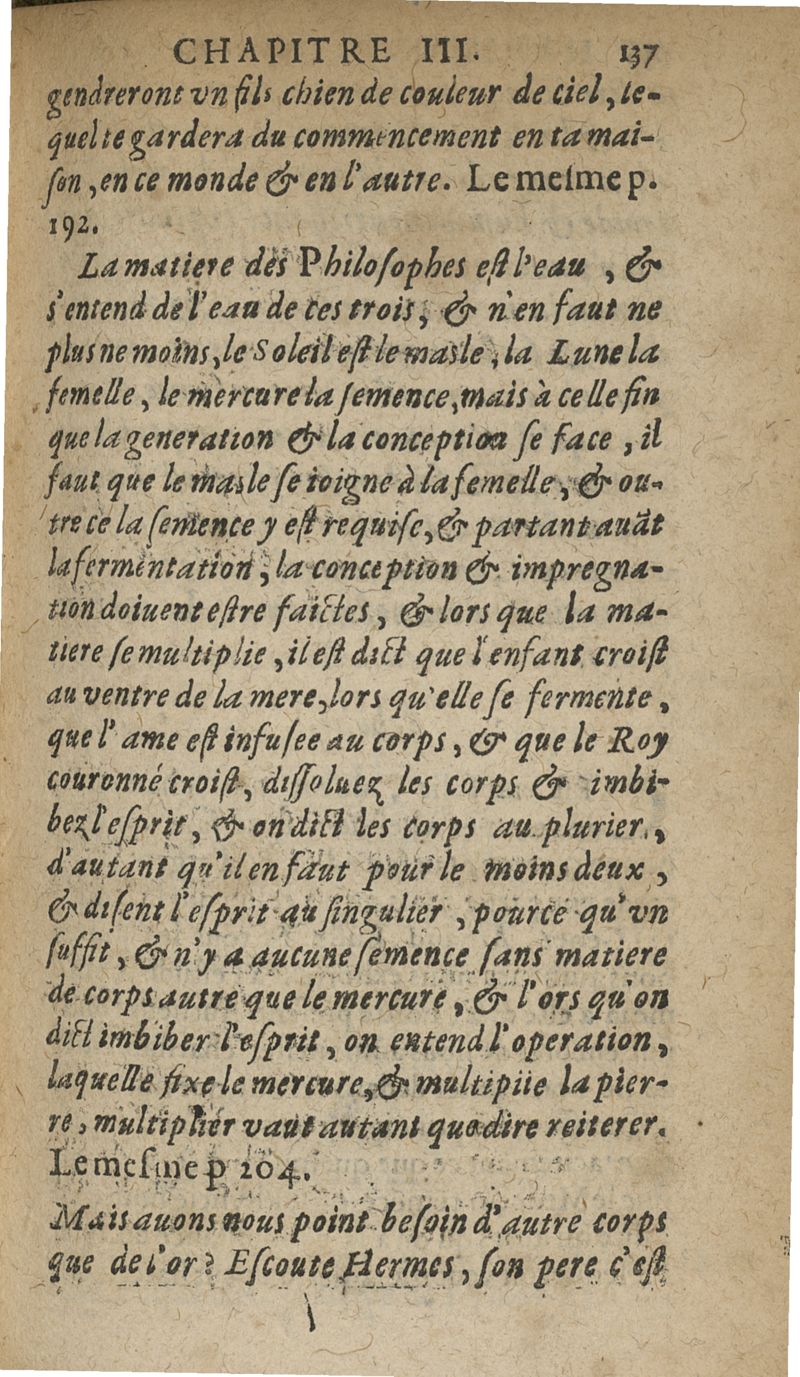 CHAPITRE III. 137
gendreront vn fils chien de couleur de ciel, le-
quel te gardera du commencement en ta mai-
son, en ce monde & en l'autre. Le mesme p.
192.
La matiere des Philosophes est l'eau, &
s'entend de l'eau de ces trois, & n'en faut ne
plus ne moins, le Soleil est le masle, la Lune la
femelle, le mercure la semence, mais à celle fin
que la generation & la conception se face, il
faut que le masle se ioigne à la femelle, & ou-
tre ce la semence y est requise, & partant auāt
la fermentation, la conception & impregna-
tion doiuent estre faictes, & lors que la ma-
tiere se multiplie, il est dict que l'enfant croist
au ventre de la mere, lors qu'elle se fermente,
que l'ame est infusee au corps, & que le Roy
couronné croist, dissoluez les corps & imbi-
bez l'esprit, & on dict les corps au plurier,
d'autant qu'il en faut pour le moins deux,
& disent l'esprit au singulier, pource qu'vn
suffit, & n'y a aucune semence sans matiere
de corps autre que le mercure, & l'ors qu'on
dict imbiber l'esprit, on entend l'operation,
laquelle fixe le mercure, & multiplie la pier-
re, multiplier vaut autant que dire reiterer.
Le mesme p 204.
Mais auons nous point besoin d'autre corps
que de l'or? Escoute Hermes, son pere c'est